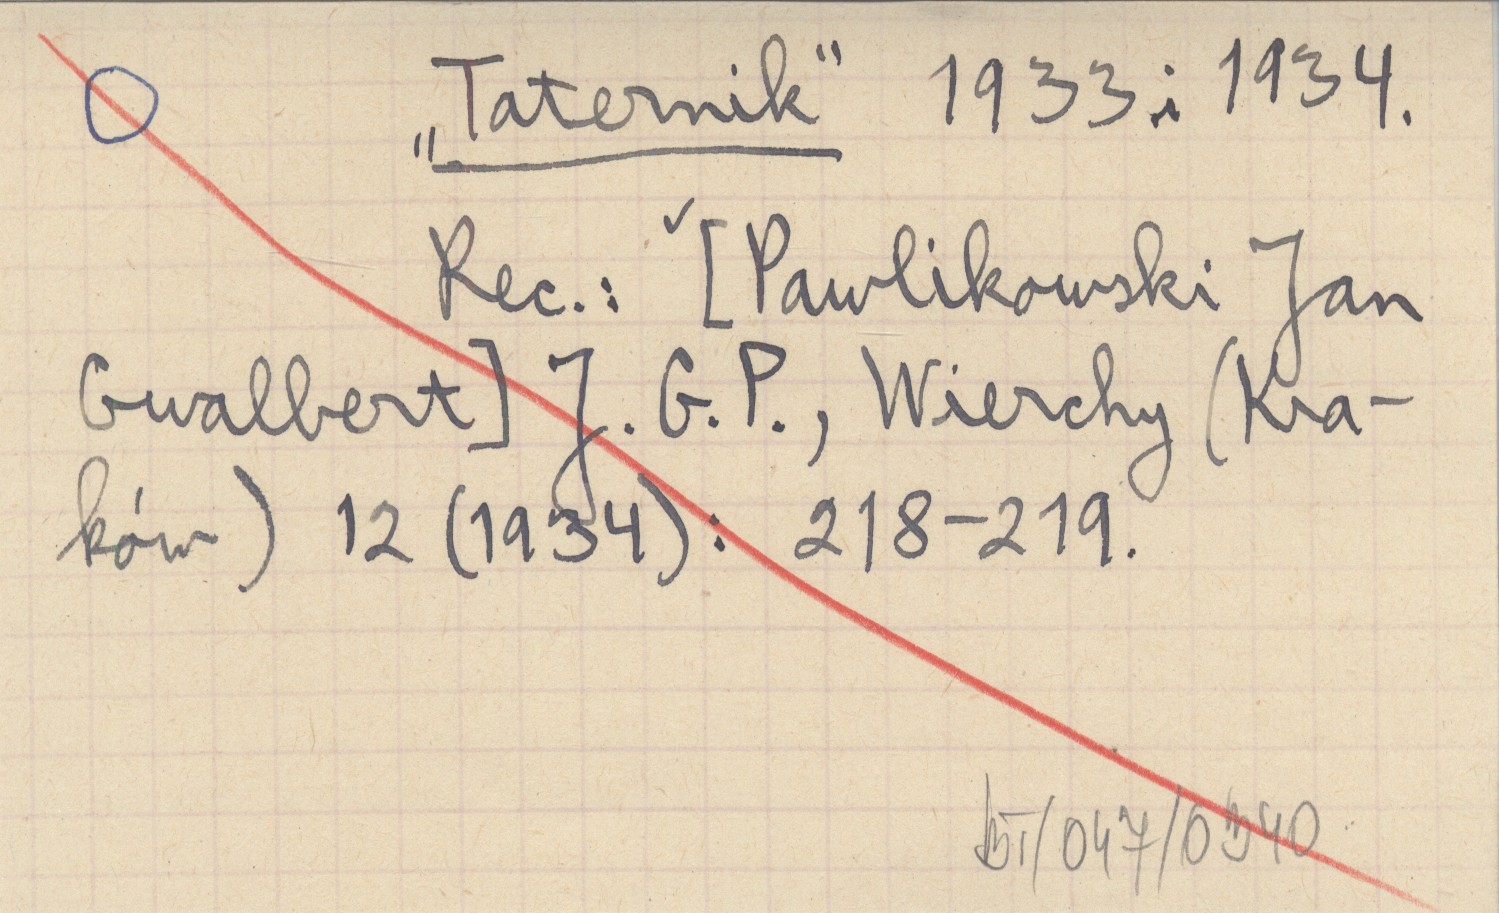 „Taternik” 1933 i 1934.
Rec.: [Pawlikowski Jan
Gwalbert] J. G. P., Wierchy (Kra-
ków) 12 (1934): 218-219.
bT/047/0340